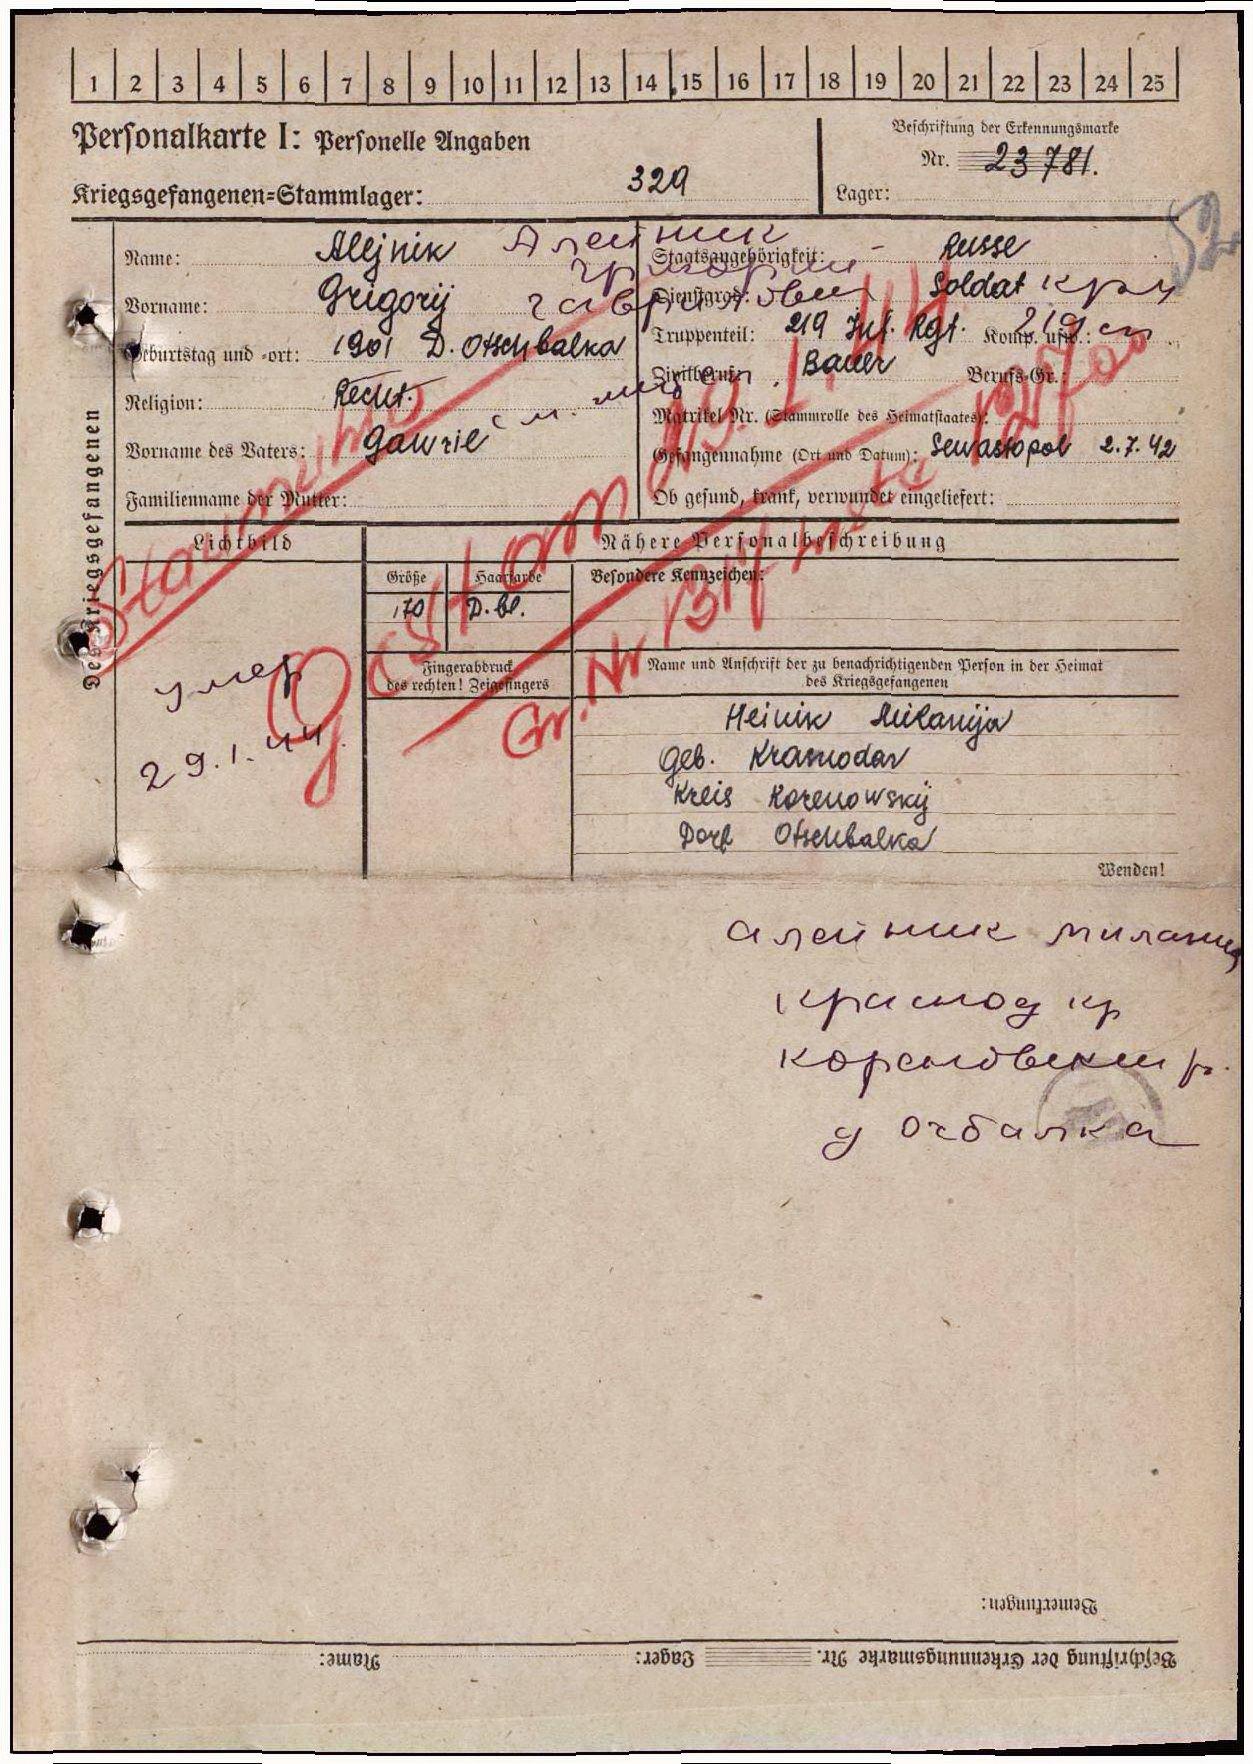 1 2 3 4 5 6 7 8 9 10 11 12 13 14 15 16 17 18 19 20 21 22 23 24 25
Personalkarte I: Personelle Angaben
Beschriftung der Erkennungsmarke
Nr. 23781.
Kriegsgefangenen=Stammlager: 329
Lager:
52
Des Kriegsgefangenen
Name: Alejnik Алейник
Vorname: Grigorij Григорий Гаврилович
Geburtstag und -ort: 1901 D. Otschbalka
Religion:
Vorname des Vaters: Gawriel
Familienname der Mutter:
Staatsangehörigkeit: Russe
Dienstgrad: Soldat
Truppenteil: 219 Inf. Rgt. Komp. usw.: 219 сп
Zivilberuf: Bauer Berufs-Gr.:
Matrikel Nr. (Stammrolle des Heimatstaates):
Gefangennahme (Ort und Datum): Sewastopol 2.7.42
Ob gesund, krank, verwundet eingeliefert:
Gestorben 29.1.44
Gr. Nr
Lichtbild
Nähere Personalbeschreibung
Größe Haarfarbe Besondere Kennzeichen:
170 D. bl.
Fingerabdruck
des rechten! Zeigefingers
Name und Anschrift der zu benachrichtigenden Person in der Heimat
des Kriegsgefangenen
умер
29.1.44.
Milanija
Geb. Krasnodar
Kreis Korenowskij
Dorf Otschbalka
Wenden!
Алейник Милания
Краснод кр
Кореновский р.
д Очбалка
Bemerkungen:
Beschriftung der Erkennungsmarke Nr. Lager: Name: